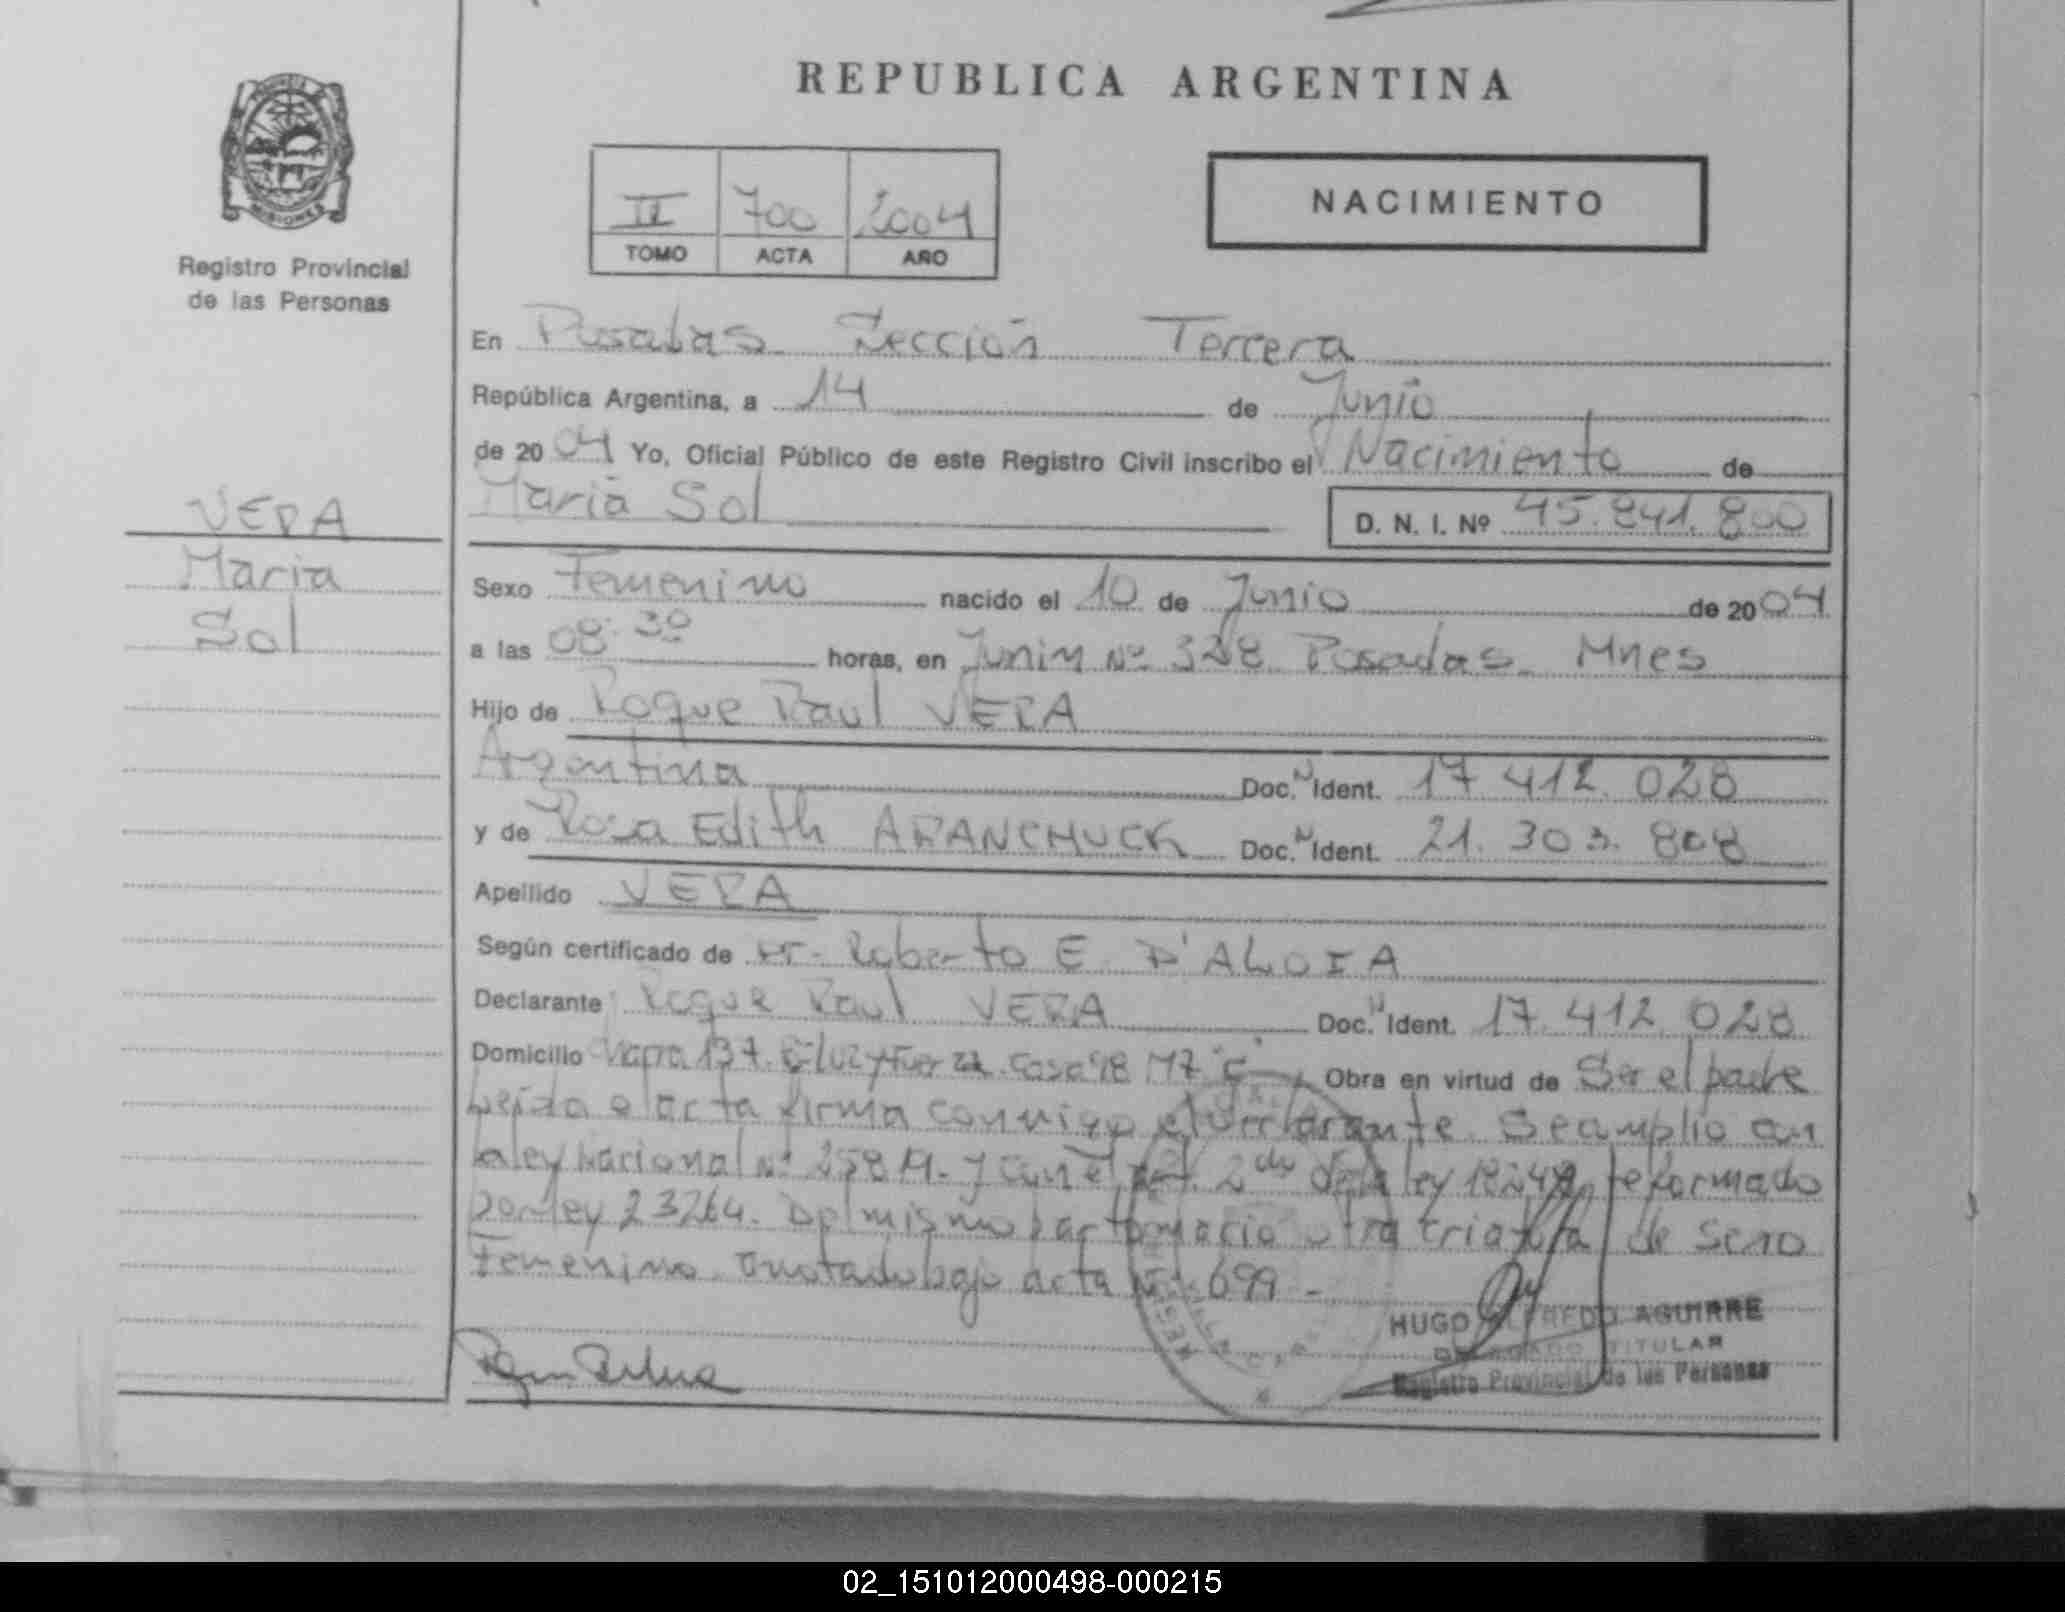 REPUBLICA ARGENTINA
MISIONES
Registro Provincial
de las Personas
II 700 2004
TOMO ACTA AÑO
NACIMIENTO
En Posadas Sección Tercera
República Argentina, a 14 de Junio
de 2004 Yo, Oficial Público de este Registro Civil inscribo el Nacimiento de
Maria Sol
D. N. I. Nº 45.841.800
VERA
Maria
Sol
Sexo Femenino nacido el 10 de Junio de 2004
a las 08:30 horas, en Junin Nº 328 Posadas Mnes
Hijo de Roque Raul VERA
Argentina Doc. N Ident. 17 412 028
y de Rosa Edith ARANCHUCK Doc. N Ident. 21. 303. 808
Apellido VERA
Según certificado de Dr. Roberto E. D'ALOIA
Declarante Roque Raul VERA Doc. N Ident. 17. 412. 028
Domicilio 137. Luz y Fuerza Casa 48 M7 "C" Obra en virtud de Ser el padre
el acta firma conmigo el declarante. Se amplio con
la ley Nacional Nº 25819. y con el art. 2do de la ley reformado
por ley 23264. Del mismo parto nacio otra criatura de sexo
Femenino. anotado bajo acta Nº 699 -
HUGO ALFREDO AGUIRRE
DELEGADO TITULAR
Registro Provincial de las Personas
02_151012000498-000215